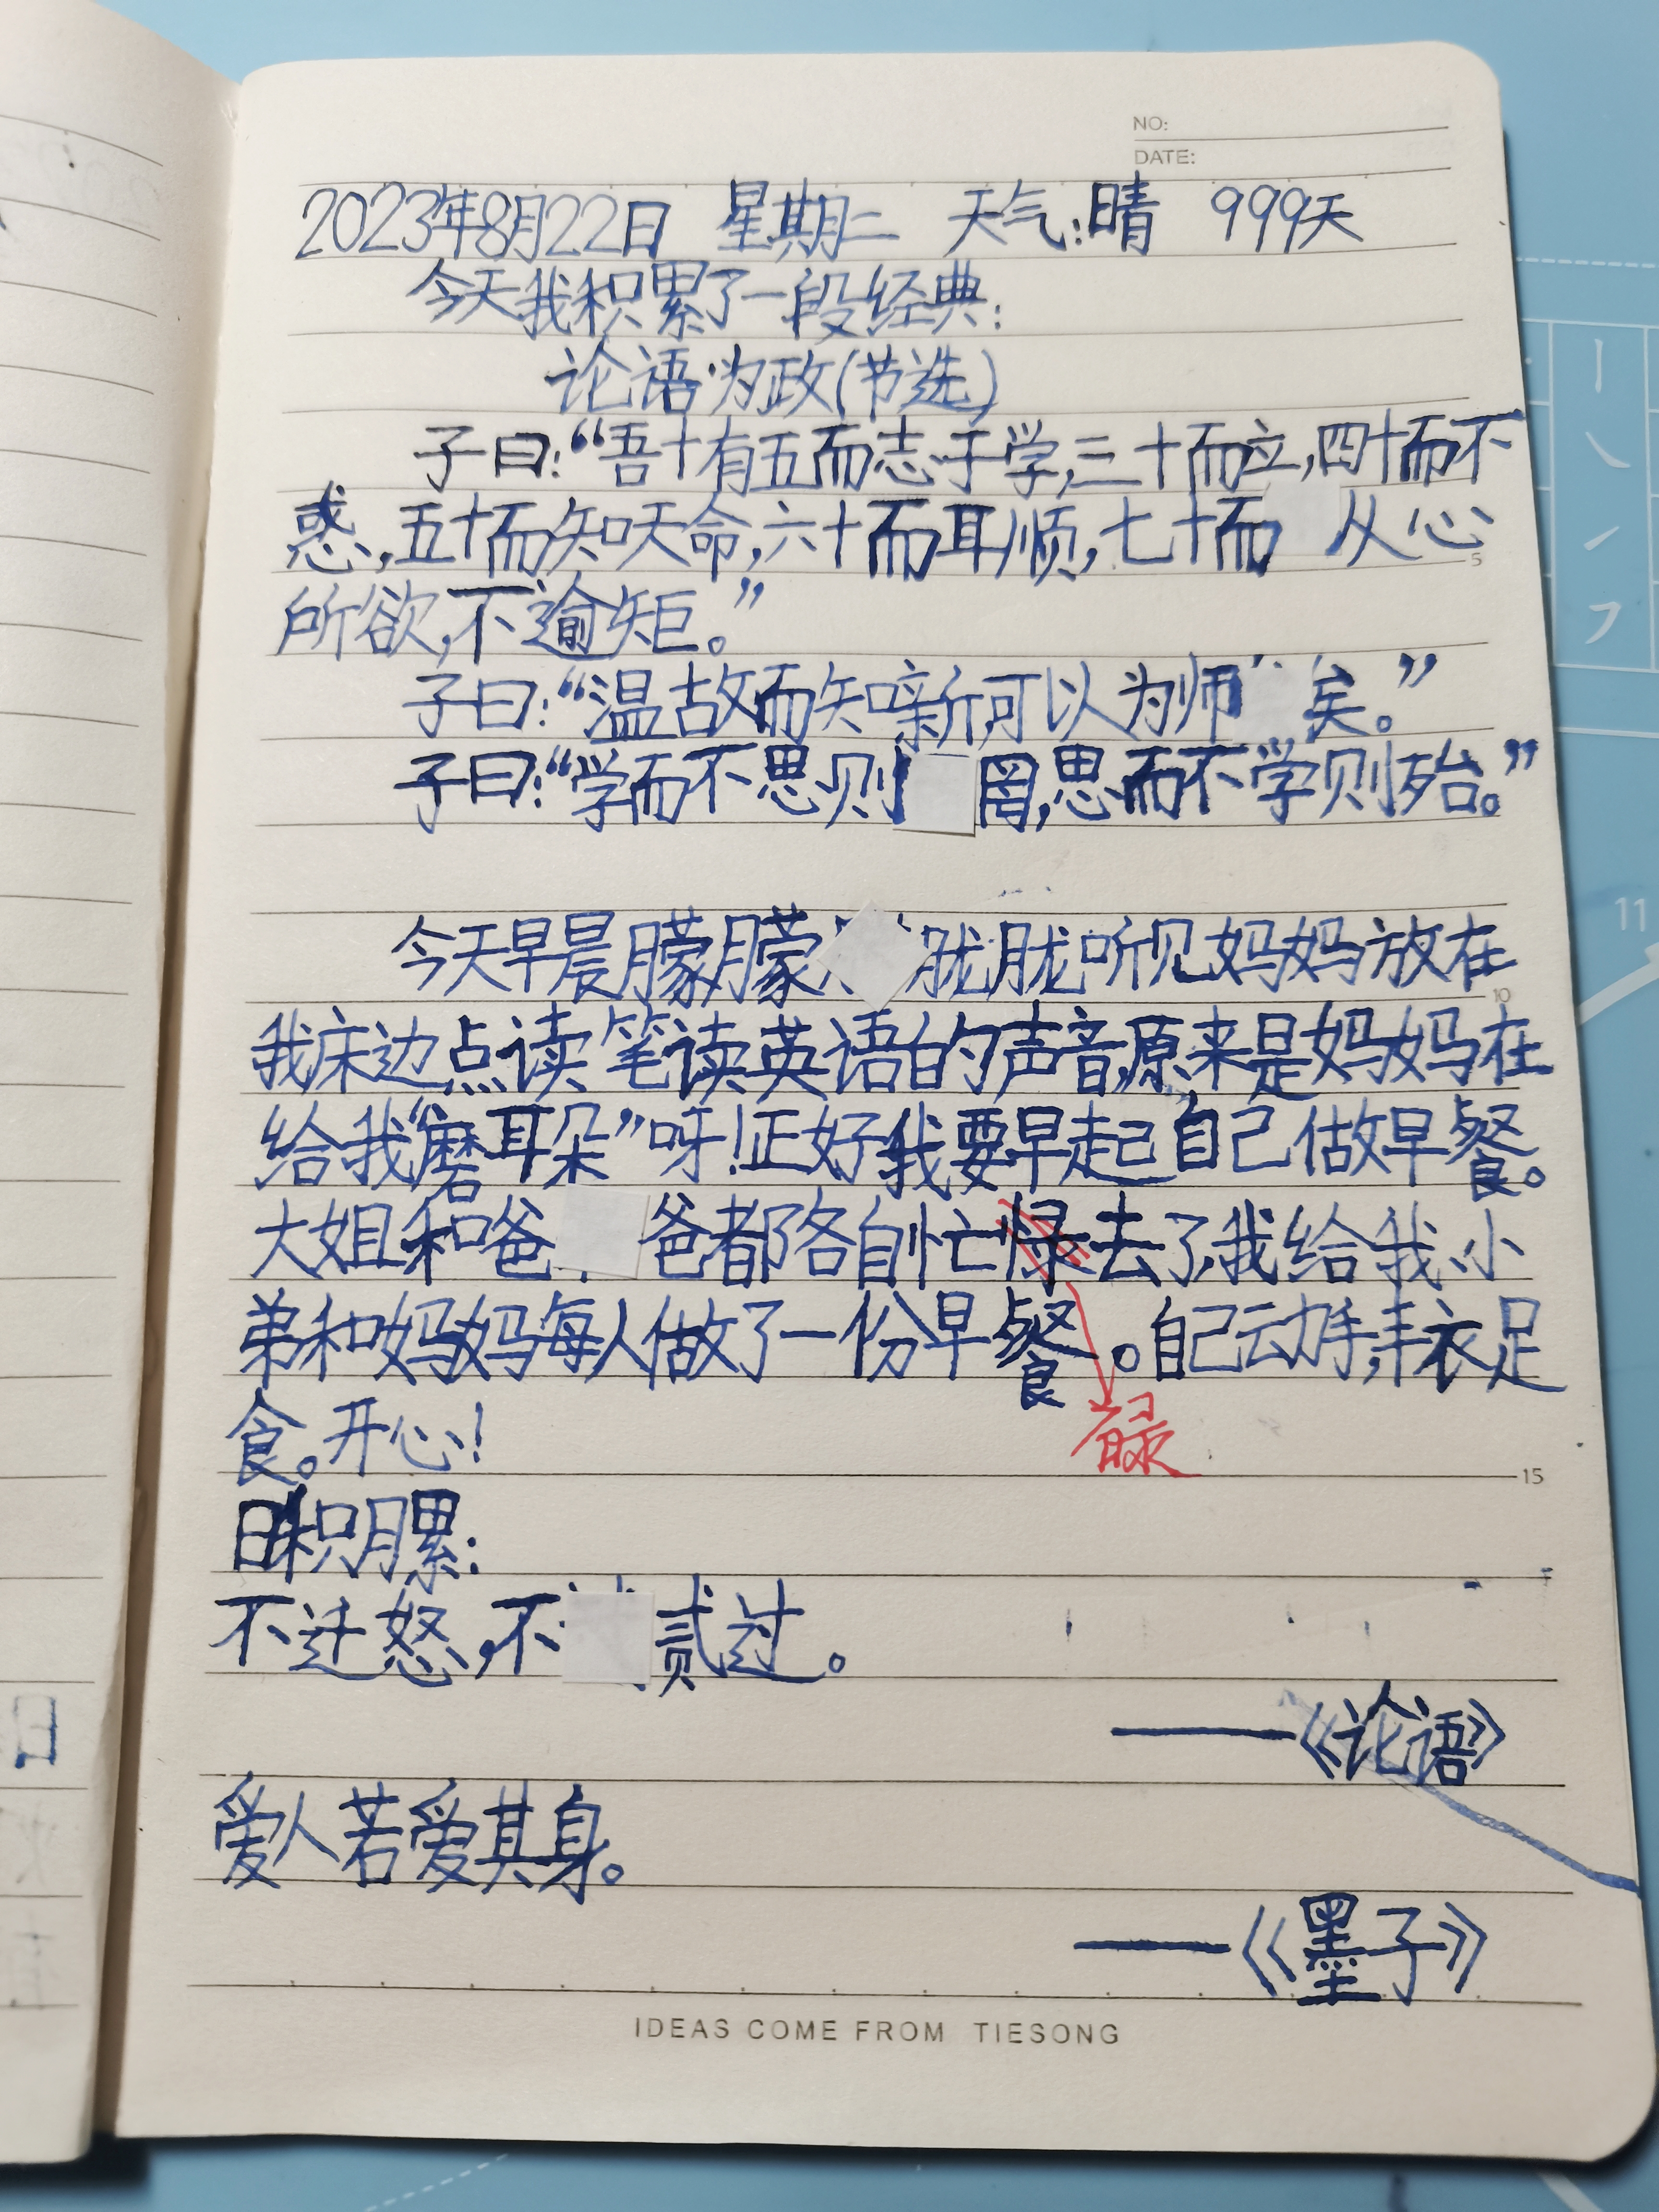 NO:
DATE:
2023年8月22日 星期二 天气:晴 999天
今天我积累了一段经典:
论语·为政(节选)
子曰:“吾十有五而志于学,三十而立,四十而不
惑,五十而知天命,六十而耳顺,七十而从心
所欲,不逾矩。”
子曰:“温故而知新,可以为师矣。”
子曰:“学而不思则罔,思而不学则殆。”
今天早晨朦朦胧胧听见妈妈放在
我床边点读笔读英语的声音,原来是妈妈在
给我“磨耳朵”呀!正好我要早起自己做早餐。
大姐和爸爸都各自忙禄去了,我给我、小
弟和妈妈每人做了一份早餐。自己动手,丰衣足
碌
食。开心!
日积月累:
不迁怒,不贰过。
——《论语》
爱人若爱其身。
——《墨子》
IDEAS COME FROM TIESONG
5
10
15
11